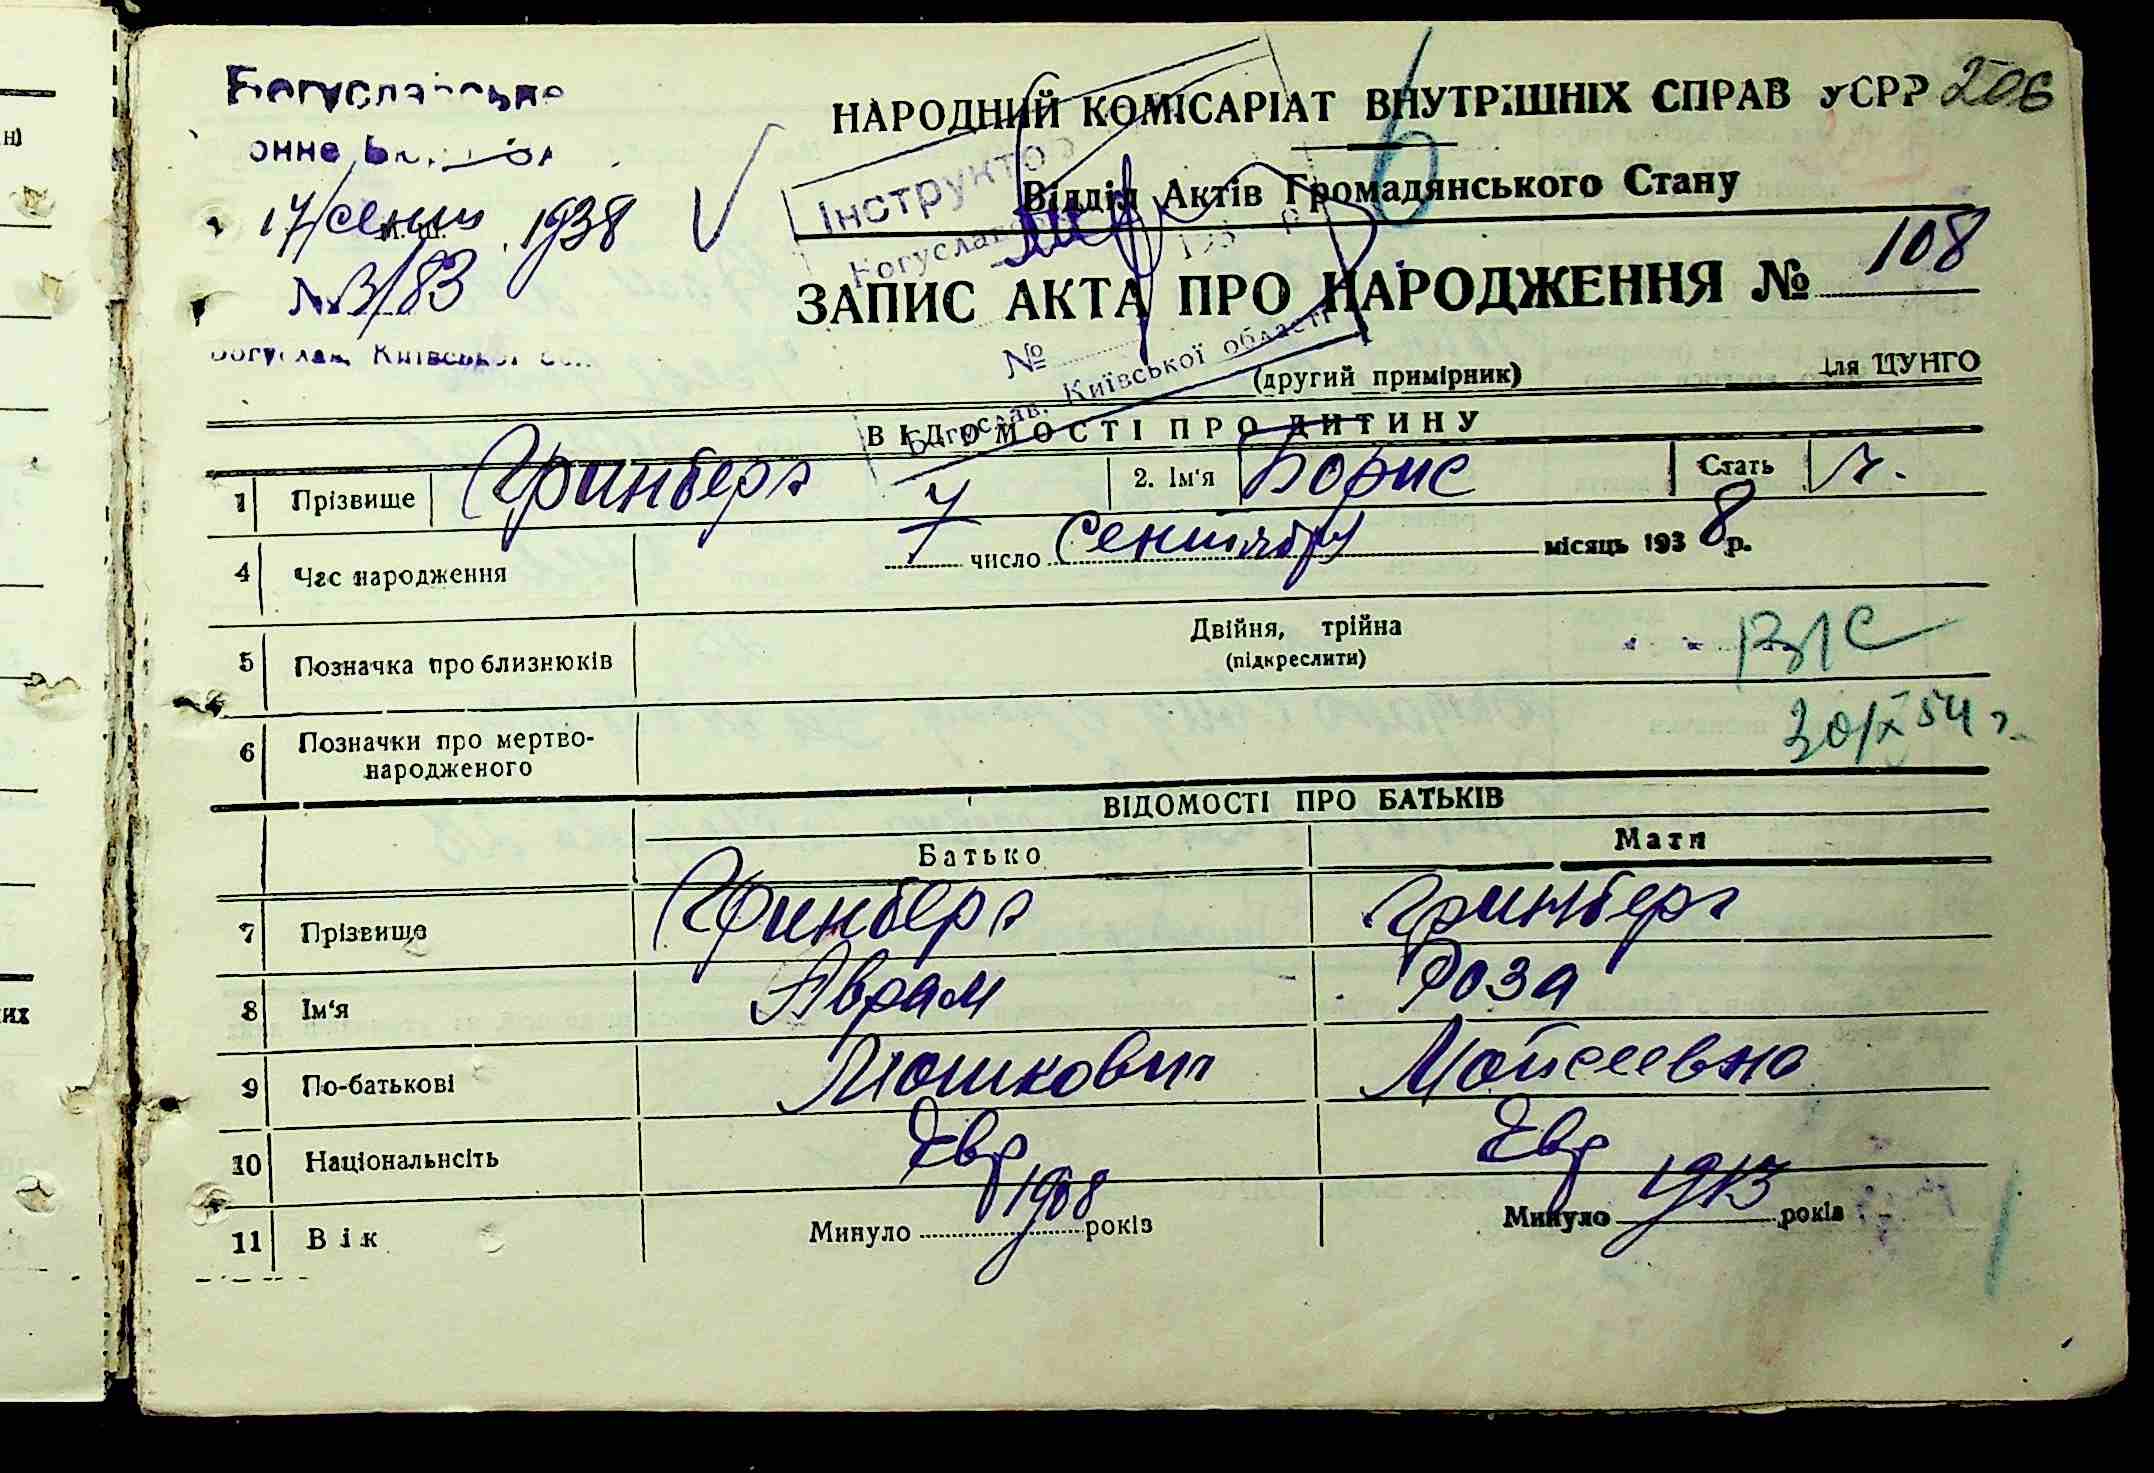 н)
их
206
Богуславське
17/сент. 1938
№ 3/83
Богуслав, Київської обл.
НАРОДНИЙ КОМІСАРІАТ ВНУТРІШНІХ СПРАВ УСРР
Інструктор
Відділ Актів Громадянського Стану
ЗАПИС АКТА ПРО НАРОДЖЕННЯ № 108
№
Богуслав, Київської області
(другий примірник) для ЦУНГО
ВІДОМОСТІ ПРО ДИТИНУ
1 Прізвище Гринберг 2. Ім'я Борис Стать
4 Час народження 7 число Сентября місяць 1938 р.
5 Позначка про близнюків Двійня, трійна
(підкреслити)
В/С
30/IX 54 г.
6 Позначки про мертво-
народженого
ВІДОМОСТІ ПРО БАТЬКІВ
Батько Мати
7 Прізвище Гринберг Гринберг
8 Ім'я Аврам Роза
9 По-батькові Мошкович Мойсеевна
10 Національнсіть Евр Евр
11 Вік Минуло 1908 років Минуло 1913 років